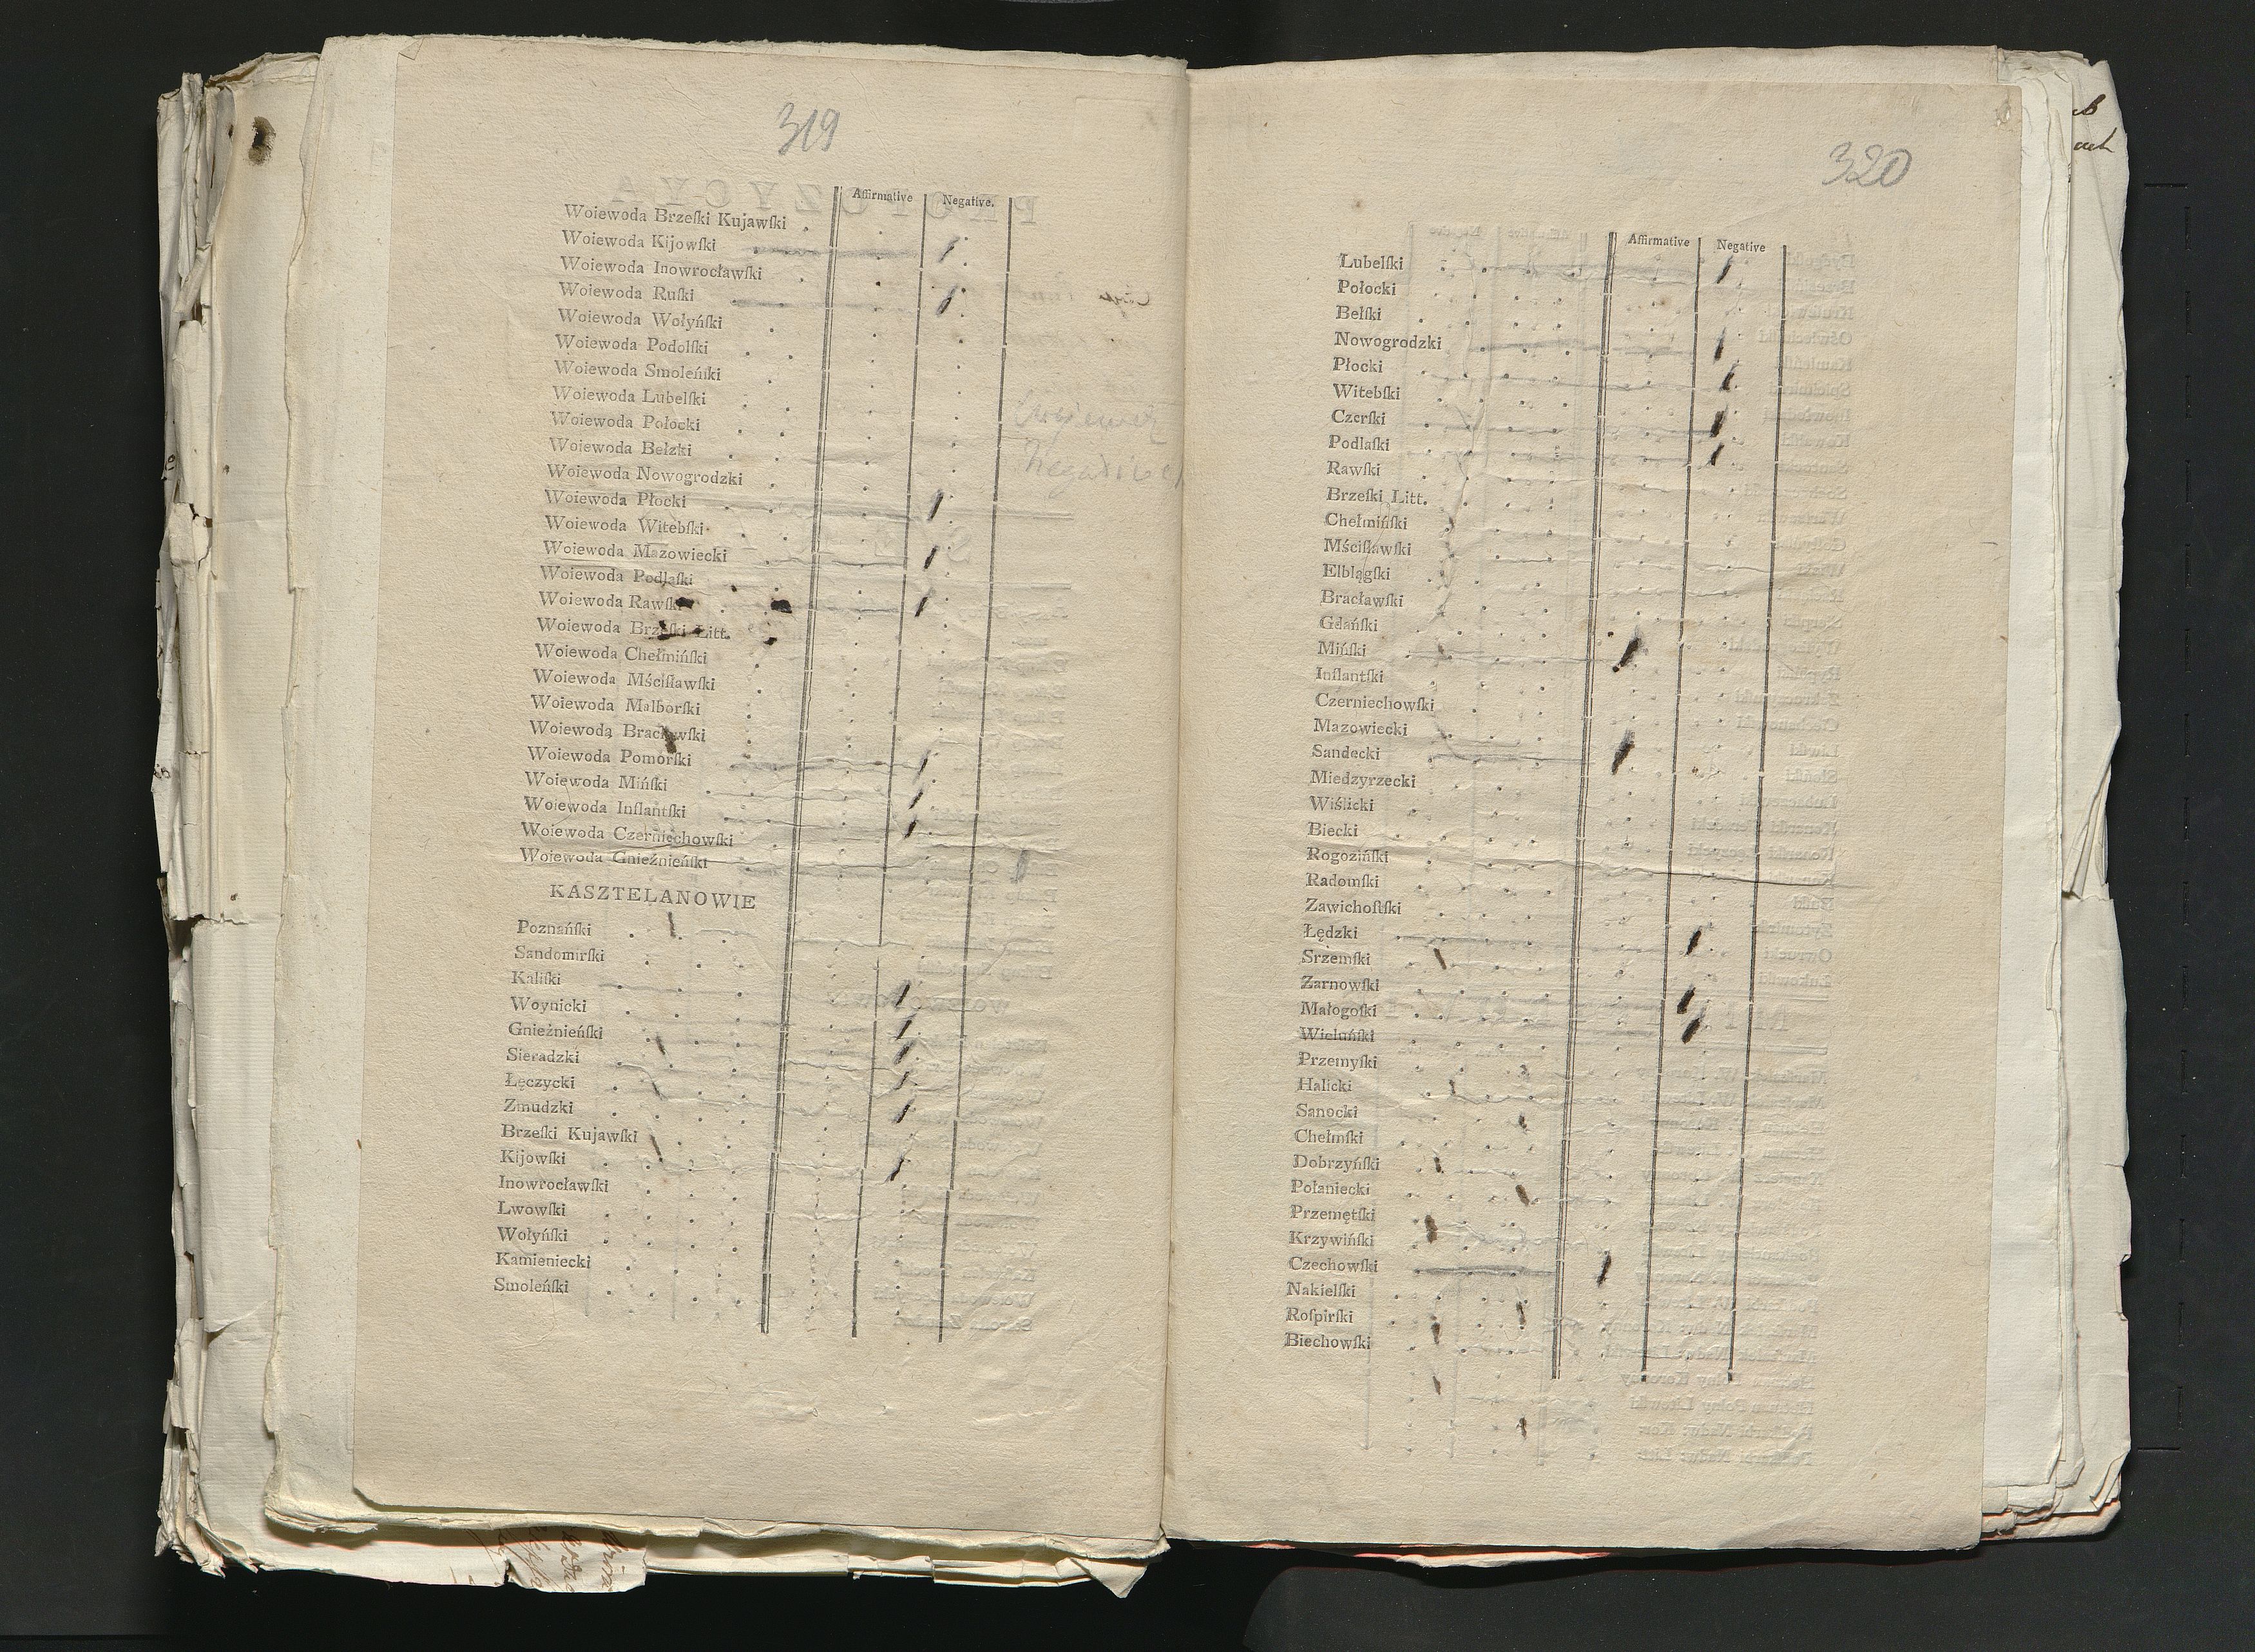 319
Affirmative Negative.
Woiewoda Brzeſki Kujawſki
Woiewoda Kijowſki
Woiewoda Inowrocławſki
Woiewoda Ruſki
Woiewoda Wołyńſki
Woiewoda Podolſki
Woiewoda Smoleńſki
Woiewoda Lubelſki
Woiewoda Połocki
Woiewoda Bełzki
Woiewoda Nowogrodzki
Woiewoda Płocki
Woiewoda Witebſki
Woiewoda Mazowiecki
Woiewoda Podlaſki
Woiewoda Rawſki
Woiewoda Brzeſki Litt.
Woiewoda Chełmińſki
Woiewoda Mśćiſławſki
Woiewoda Malborſki
Woiewoda Bracławſki
Woiewoda Pomorſki
Woiewoda Mińſki
Woiewoda Inflantſki
Woiewoda Czerniechowſki
Woiewoda Gnieźnieńſki
KASZTELANOWIE
Poznańſki
Sandomirſki
Kaliſki
Woynicki
Gnieźnieńſki
Sieradzki
Łęczycki
Zmudzki
Brzeſki Kujawſki
Kijowſki
Inowrocławſki
Lwowſki
Wołyńſki
Kamieniecki
Smoleńſki
320
Affirmative Negative
Lubelſki
Połocki
Bełſki
Nowogrodzki
Płocki
Witebſki
Czerſki
Podlaſki
Rawſki
Brzeſki Litt.
Chełmińſki
Mśćiſławſki
Elblągſki
Bracławſki
Gdańſki
Mińſki
Inflantſki
Czerniechowſki
Mazowiecki
Sandecki
Miedzyrzecki
Wiślicki
Biecki
Rogozińſki
Radomſki
Zawichoſtſki
Łędzki
Srzemſki
Zarnowſki
Małogoſki
Wieluńſki
Przemyſki
Halicki
Sanocki
Chełmſki
Dobrzyńſki
Połaniecki
Przemętſki
Krzywińſki
Czechowſki
Nakielſki
Roſpirſki
Biechowſki